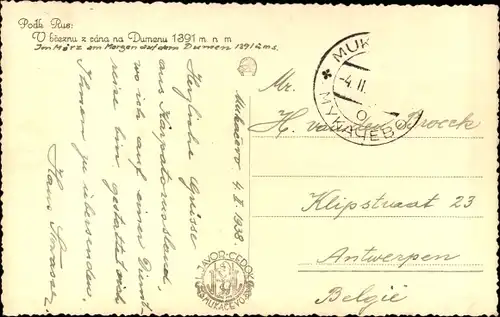 Podk. Rus:
V březnu z rána na Dumenu 1391 m. n. m
Im März am Morgen auf dem Dumen 1391 ü.m.s.
Mukačevo 4. II. 1938.
Herzliche Grüsse
aus Karpatorussland,
wo ich auf einer Dienst
reise bin gestatte ich
Ihnen zu übersenden,
Hans Strasser
MUK
-4. II.
МУКАЧЕВО
JAVOR-CEDOK
MUKAČEVO
Mr.
H. van den Broeck
Klipstraat 23
Antwerpen
Belgié